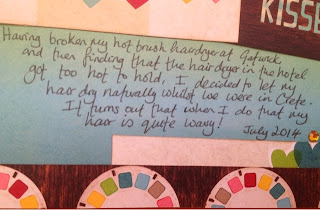 KISSE
Having broken my hot brush hairdryer at Gatwick
and then finding that the hairdryer in the hotel
got too hot to hold, I decided to let my
hair dry naturally whilst we were in Crete.
It turns out that when I do that my
hair is quite wavy!
July 2014